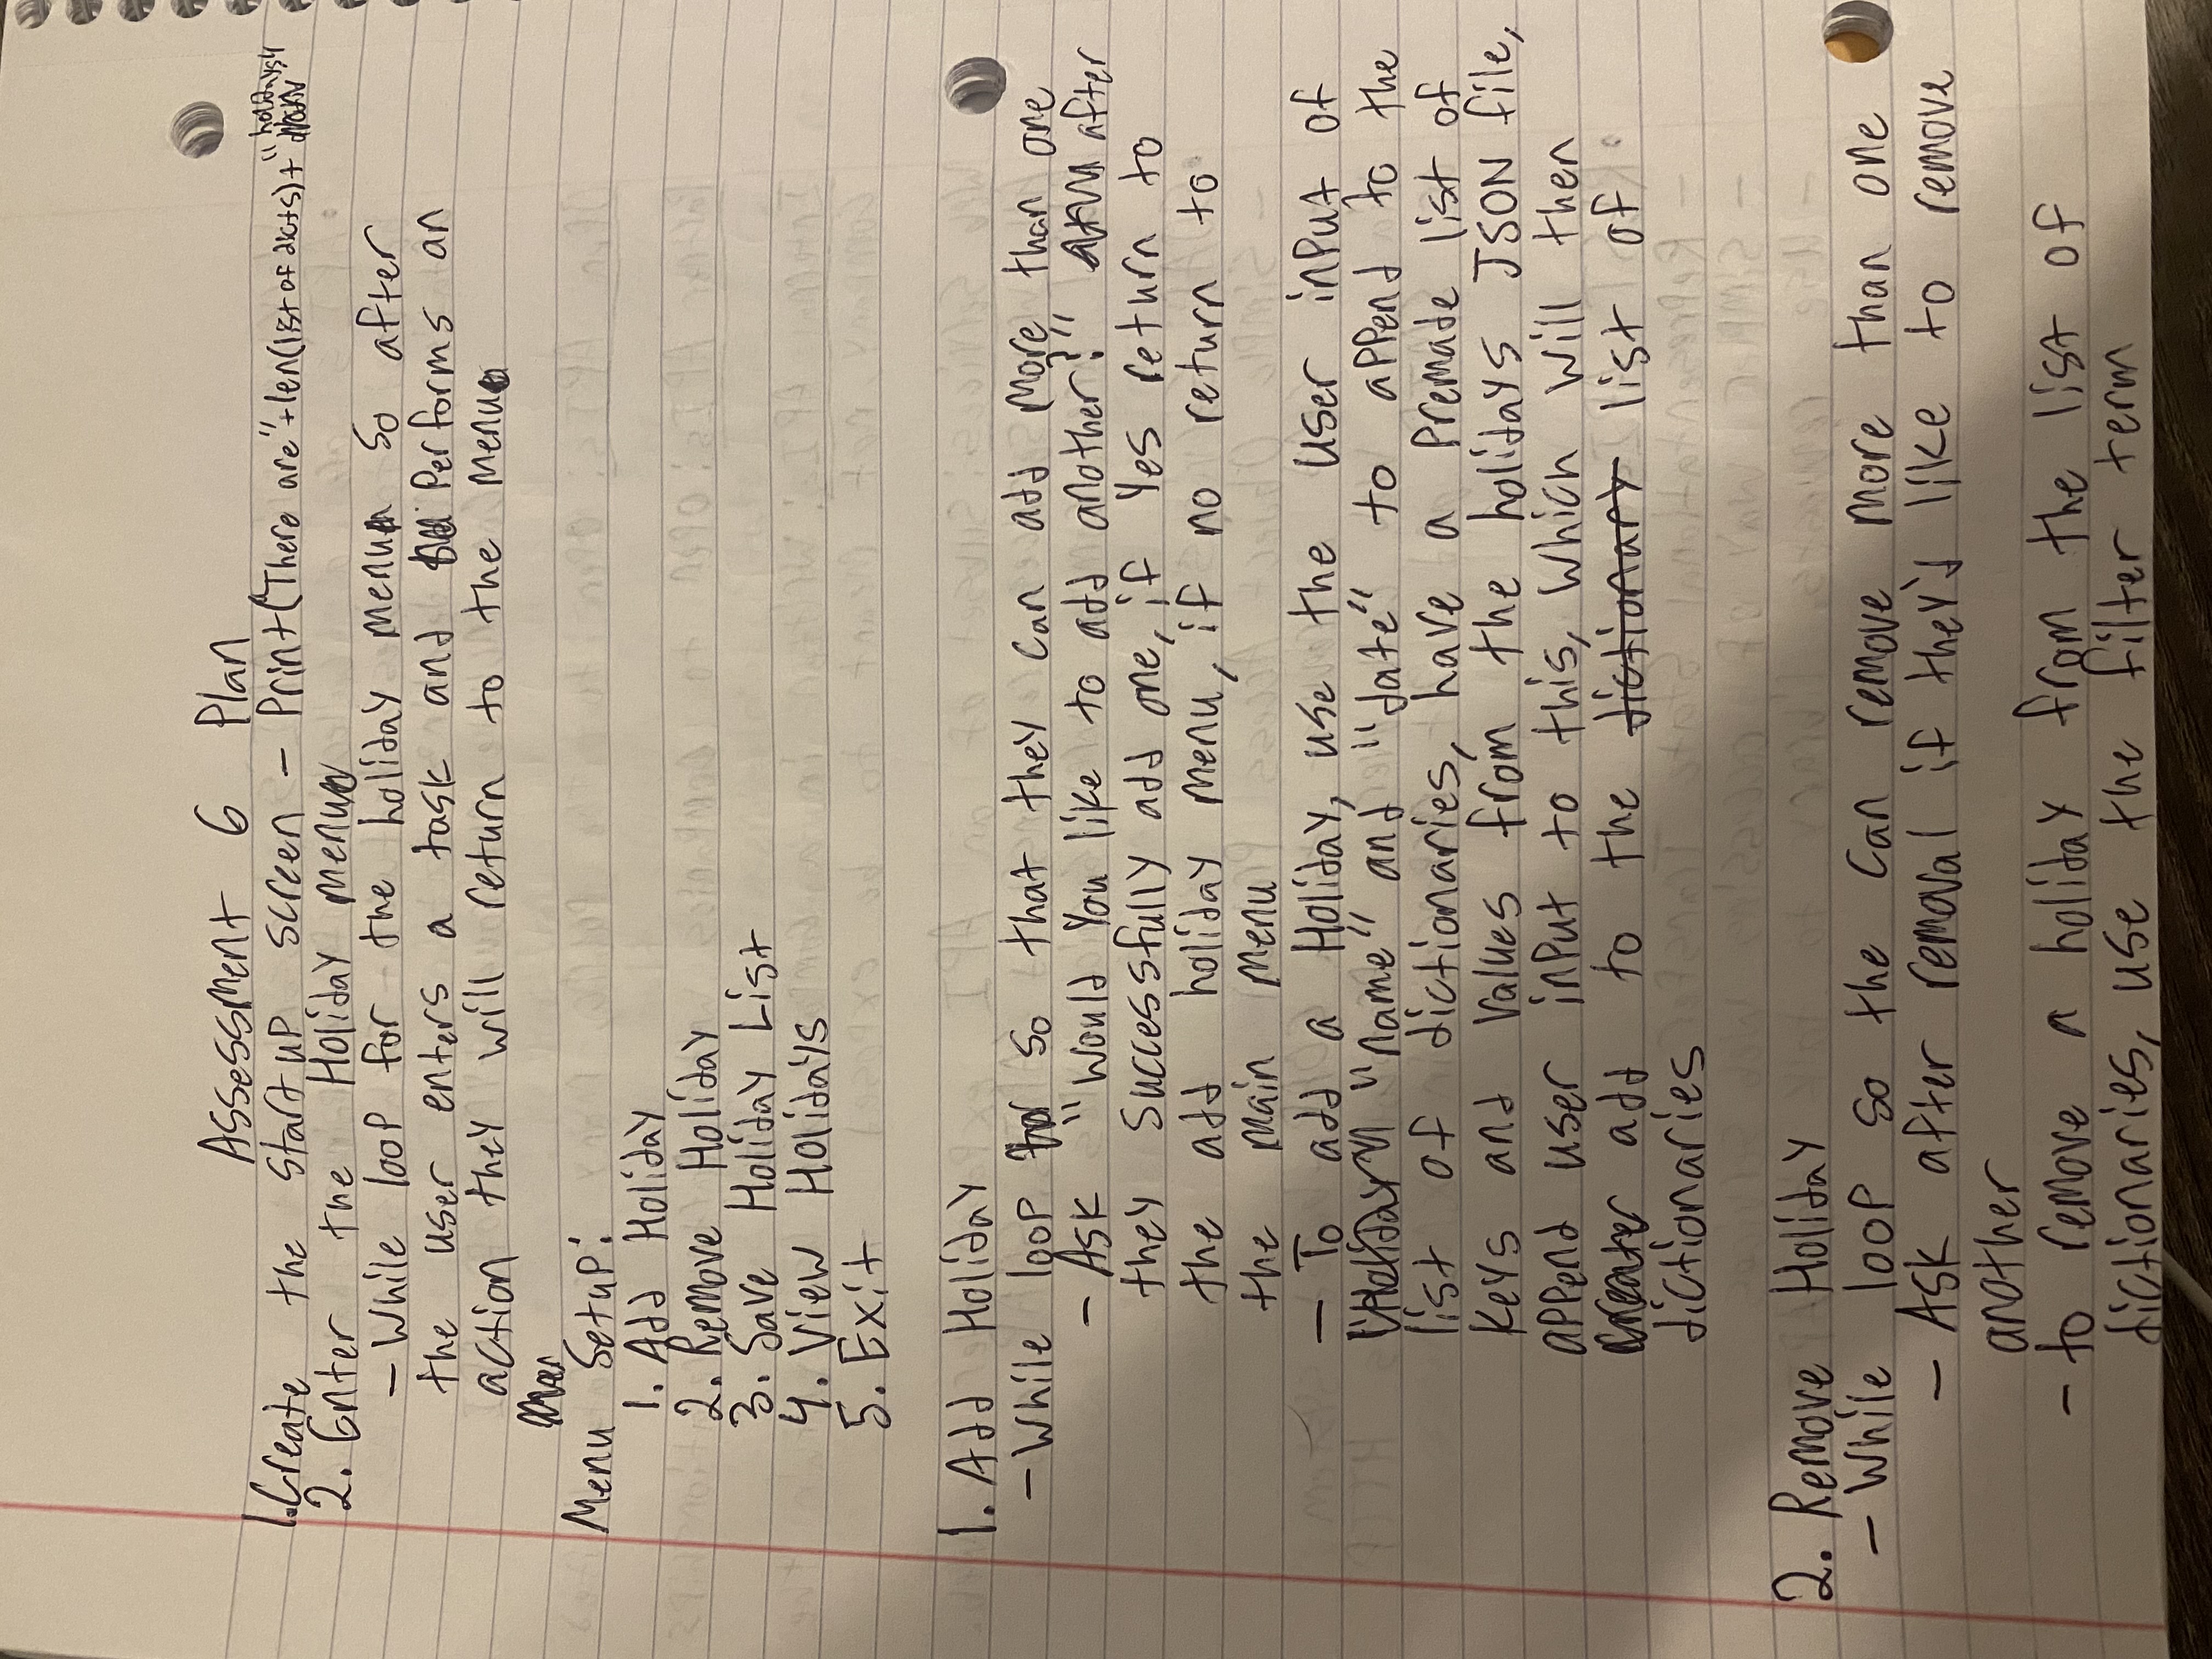 Assessment 6 Plan
1. Create the start up screen - Print("There are"+len(list of dicts)+ "holidays"
2. Enter the Holiday menu
- While loop for the holiday menu so after
the user enters a task and Performs an
action they will return to the menu
Menu Setup:
1. Add Holiday
2. Remove Holiday
3. Save Holiday List
4. View Holidays
5. Exit
1. Add Holiday
- While loop so that they can add more than one
- Ask "Would You like to add another?" after
they successfully add one, if Yes return to
the add holiday menu, if no return to
the main menu
- To add a Holiday, use the user input of
"Holiday" "name" and "date" to append to the
list of dictionaries, have a premade list of
keys and values from the holidays JSON file,
append user input to this, which will then
create add to the dictionary list of
dictionaries
2. Remove Holiday
- While loop so the can remove more than one
- Ask after removal if they'd like to remove
another
- to remove a holiday from the list of
dictionaries, use the filter term